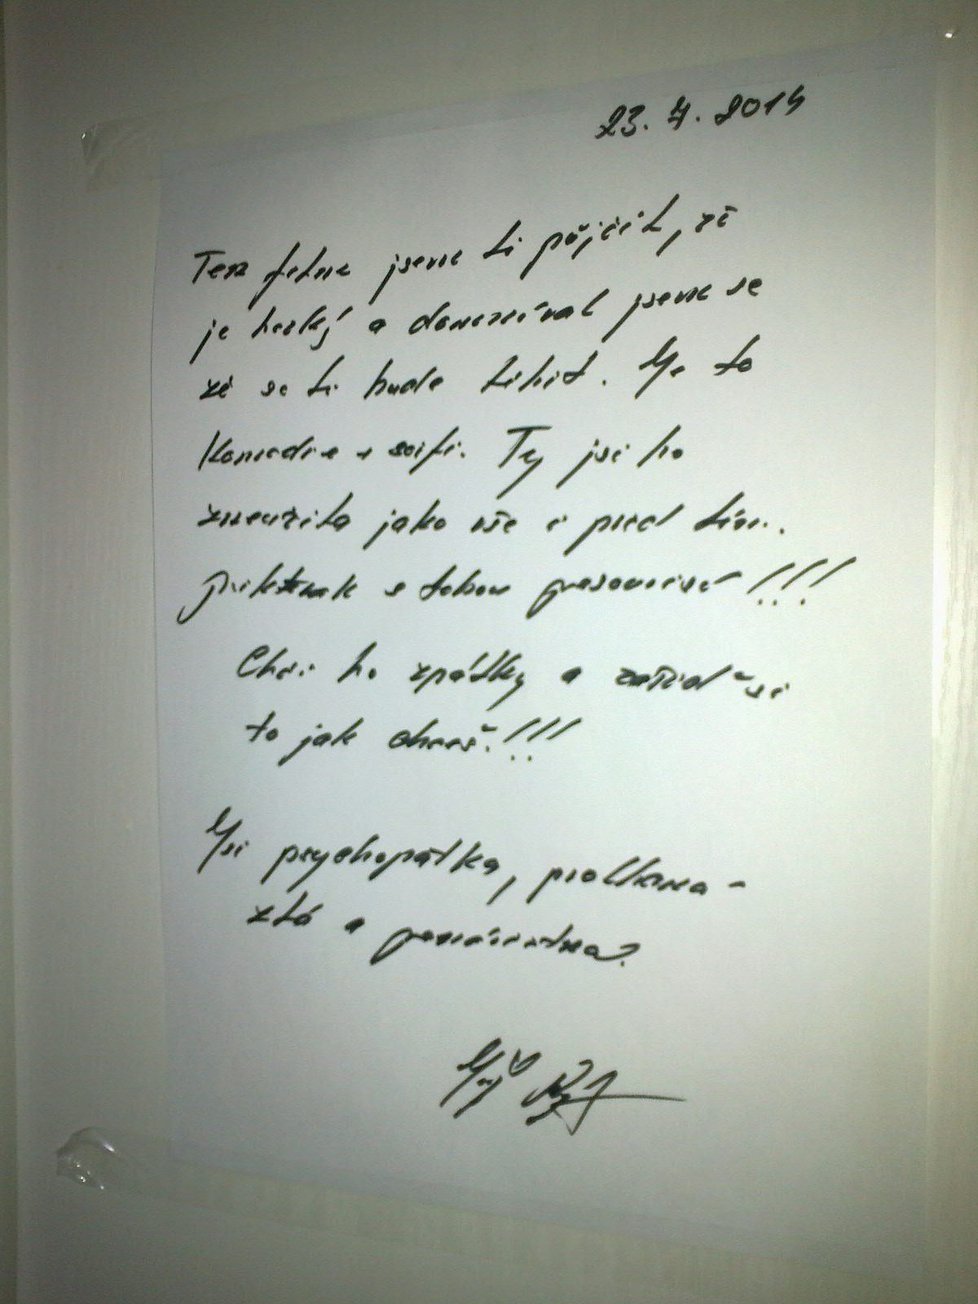 23. 4. 2014
Ten jsme ti půjčil, že
je hezký a domníval jsem se
že se ti bude líbit. Je to
Komedie s scifi. Ty jsi ho
zneužila jako vše i před tím.
s tebou !!!
Chci ho zpátky a zařiď si
to jak chceš.!!!
Jsi psychopatka, prolhaná
zlá a